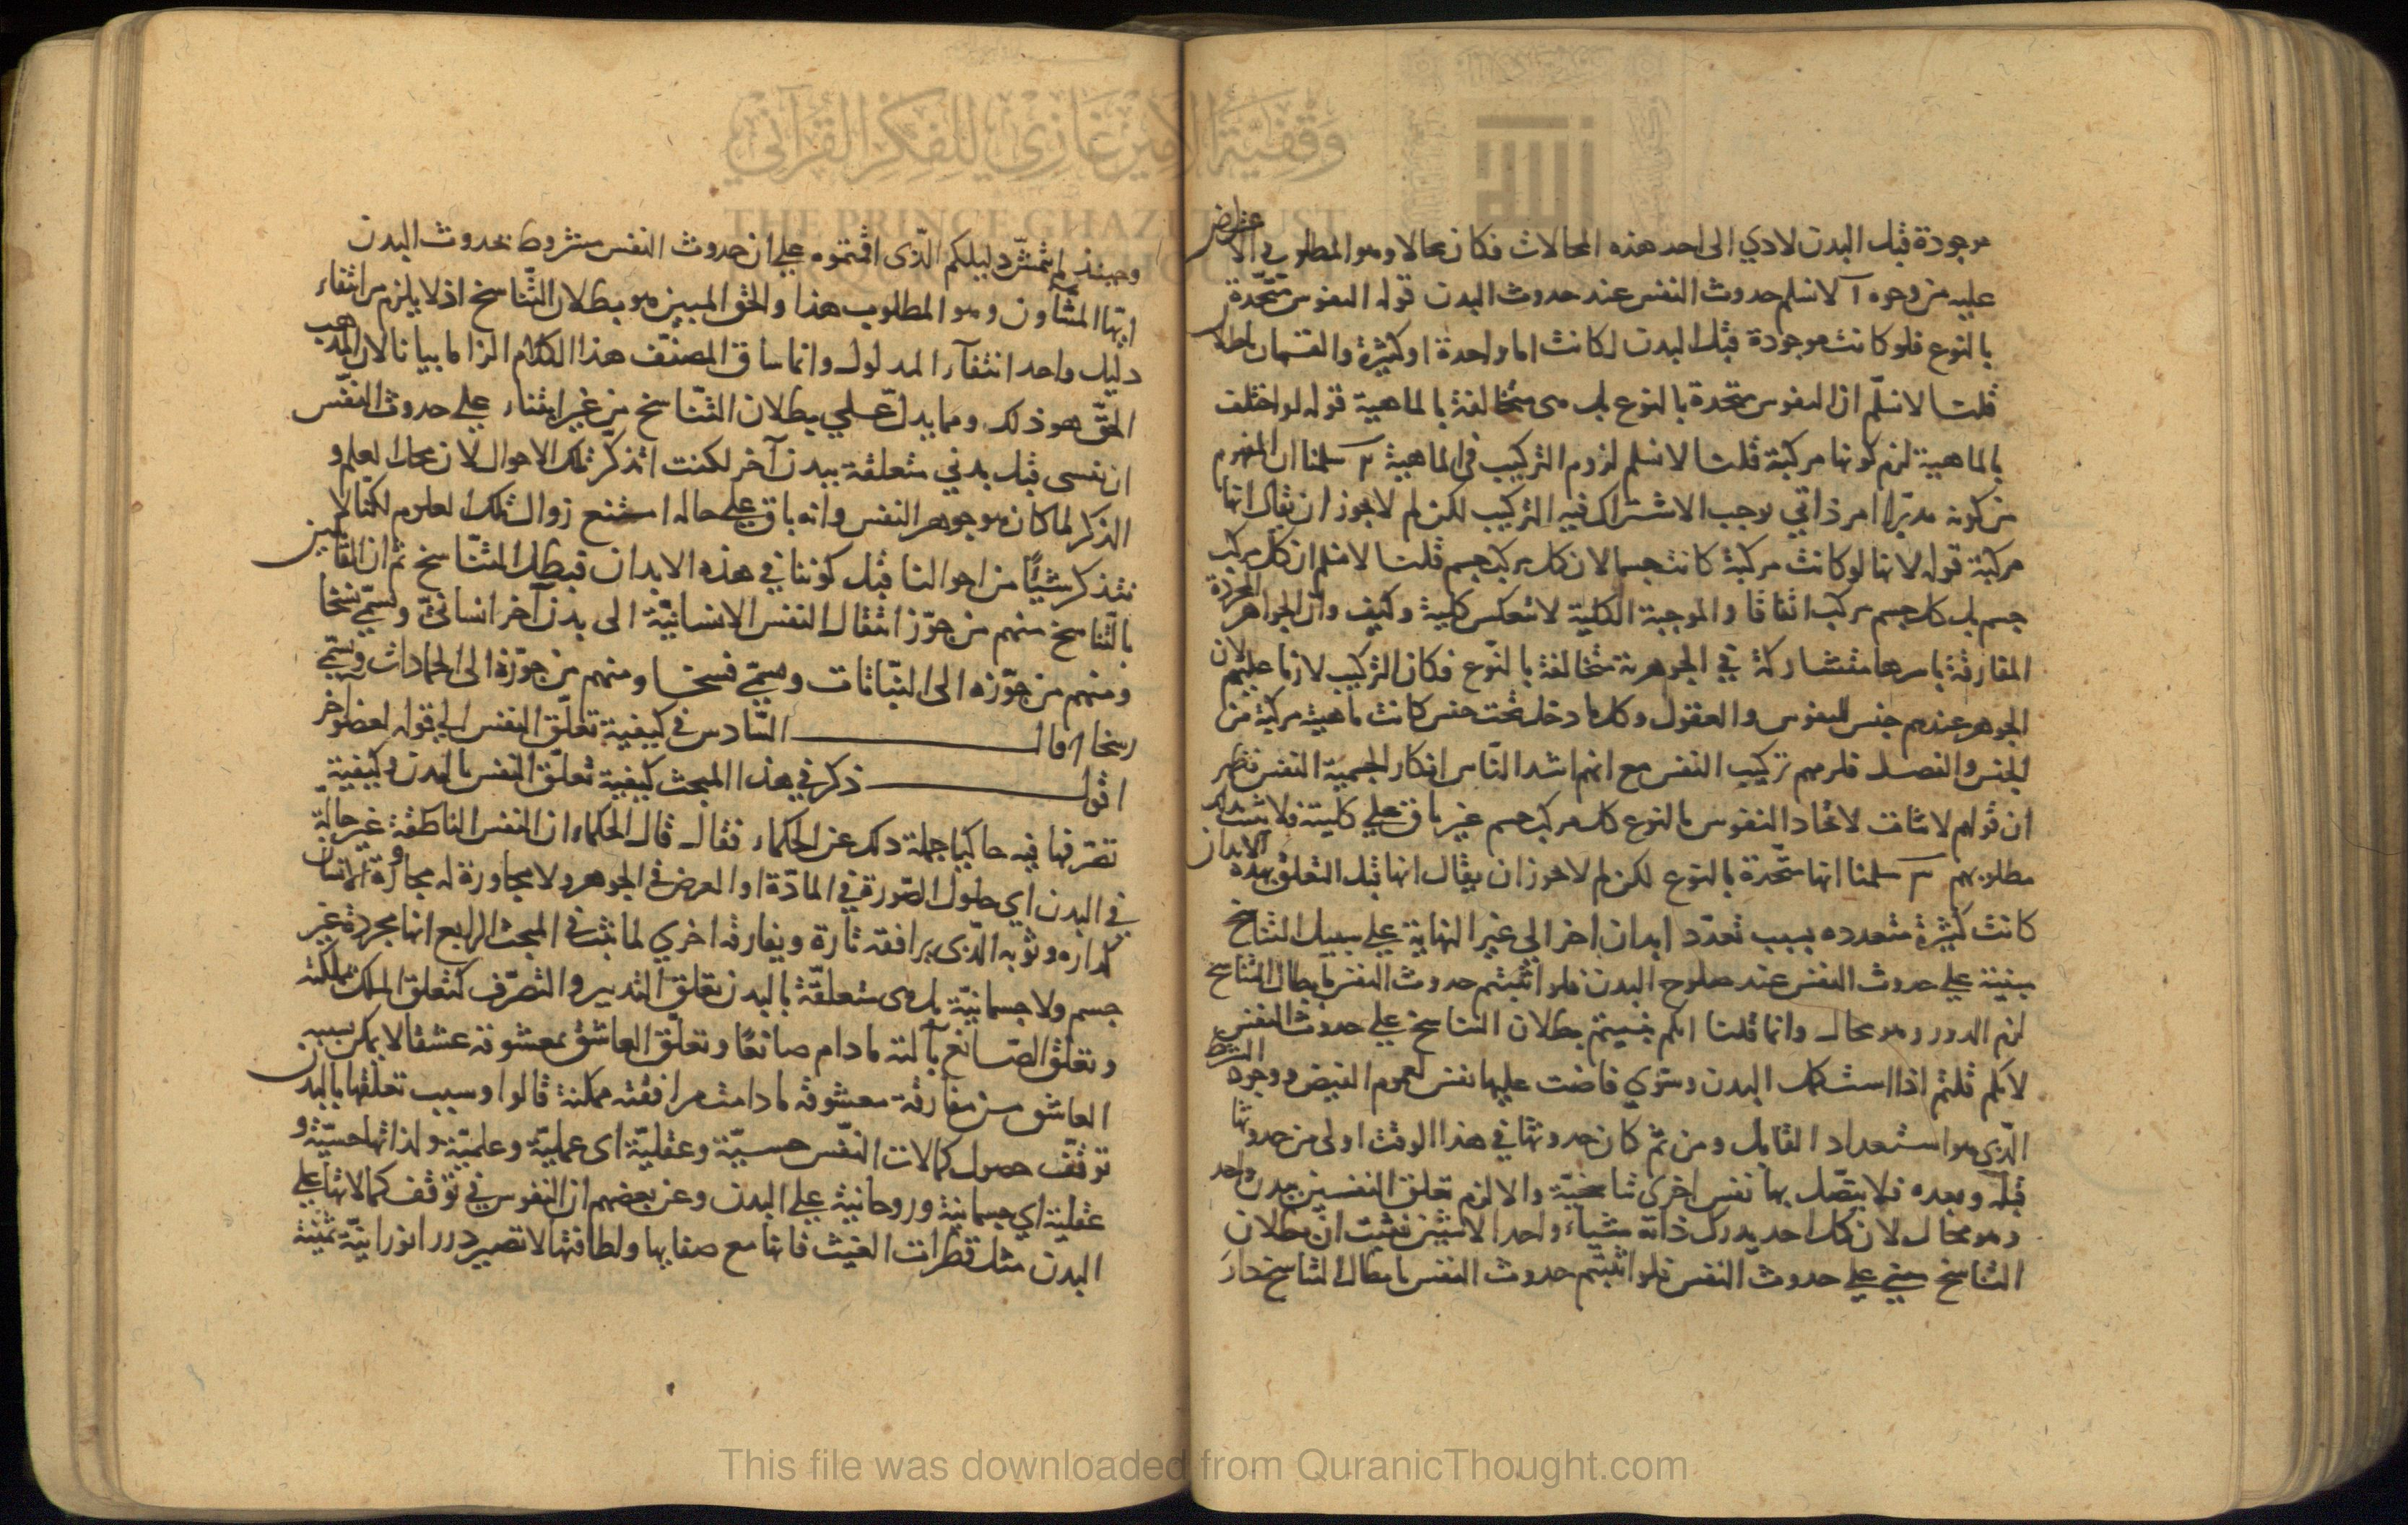 موجودة قبل البدن لادي الى احد هذه المحالات فكان محالا وهو المطلوب والاعتراض
عليه من وجوه آ لا نسلم حدوث النفس عند حدوث البدن قوله النفوس متحدة
بالنوع فلو كانت موجودة قبل البدن لكانت اما واحدة او كثيرة والقسمان باطلان
قلت لا نسلّم ان النفوس متحدة بالنوع بل هى متخالفة بالماهية قوله لو اختلف
بالماهية لزم كونها مركبة قلت لا نسلم لزوم التركيب فى الماهية سلمنا ان المفهوم
من كونه مدبرا امر ذاتي يوجب الاشتراك فيه التركيب لكن لم لا يجوز ان يقال انها
مركبة قوله لانها لو كانت مركبة كانت جسما لان كل مركب جسم قلت لا نسلم ان كل مركب
جسم بل كل جسم مركب اتفاقا والموجبة الكلية لا تنعكس كلية وكيف وان الجواهر المجردة
المفارقة باسرها متشاركة في الجوهرية متخالفة بالنّوع فكان التركيب لازما عليهم لان
الجوهر عندهم جنس للنفوس والعقول وكل ما دخل تحت جنس كانت ماهيته مركبة من
الجنس والفصل فلزمهم تركيب النفس مع انهم اشد الناس انكارا لجسمية النفس فظهر
ان قولهم لاثبات لاتحاد النفوس بالنوع كل مركب جسم غير باق على كليته فلا يثبت
مطلوبهم سلمنا انها متحدة بالنوع لكن لم لا يجوز ان يقال انها قبل التعلق بهذه الابدان
كانت كثيرة متعدده بسبب تعدّد ابدان اخر الي غير النهاية على سبيل التناسخ
مبنية علي حدوث النفس عند صلوح البدن فلو اثبتم حدوث النفس بابطال التناسخ
لزم الدور وهو محال وانما قلنا انكم بنيتم بطلان التناسخ علي حدوث النفس
لانكم قلتم اذا استكمل البدن وسوّي فاضت عليها نفس لعموم الفيض ووجود الشرط
الّذى هو استعداد القابل ومن ثم كان حدوثها في هذا الوقت اولى من حدوثها
قبله وبعده فلا يتّصل بها نفس اخرى تناسخيّة والا لزم تعلق النفسين ببدن واحد
وهو محال لان كل احد يدرك ذاته شيئا واحدا لا شيئين فثبت ان بطلان
التناسخ مبني على حدوث النفس فلو اثبتم حدوث النفس بابطال التناسخ دار
وحينئذ لم يتمشّ دليلكم الّذى اقمتموه علي ان حدوث النفس مشروط بحدوث البدن
ايها المشّاؤن وهو المطلوب هذا والحق المبين هو بطلان التّناسخ اذ لا يلزم من انتفاء
دليل واحد انتفآء المدلول وانما ساق المصنّف هذا الكلام الزاما بيانا لان المذهب
الحقّ هو ذلك ومما يدلّ علي بطلان التّناسخ من غير ابتناء علي حدوث النفس
ان نفسى قبل بدني متعلقة ببدن آخر لكنت اتذكّر تلك الاحوال لان محل العلم و
الذكر لما كان هو جوهر النفس وانه باق على حاله امتنع زوال تلك العلوم لكنا لا
نتذكر شيئًا من احوالنا قبل كوننا في هذه الابدان فبطل التّناسخ ثم ان القايلين
بالتّناسخ منهم من جوّز انتقال النفس الانسانيّة الى بدن آخر انسانىّ ويسمّي نسخا
ومنهم من جوّزه الى النّباتات ويسمّي فسخا ومنهم من جوّزه الى الجمادات ويسمّي
رسخا قال السّادس في كيفية تعلّق النفس الي قوله لعضو آخر
اقول ذكر في هذا المبحث كيفية تعلّق النفس بالبدن وكيفية
تصرفها فيه حاكيا جملة ذلك عن الحكماء فقال قال الحكماء ان النفس الناطقة غير حالّة
في البدن اي حلول الصّورة في المادّة او العرض في الجوهر ولا مجاورة له مجاورة الانسان
لداره وثوبه الّذى يرافقه تارة ويفارقه اخري لما ثبت في المبحث الرابع انها مجردة غير
جسم ولا جسمانيّة بل هى متعلقّة بالبدن تعلق التدبير والتّصرّف كتعلق الملك بملكته
وتعلق الصّانع بآلته ما دام صانعًا وتعلّق العاشق بمعشوقه عشقا لا يمكن بسببه
العاشق من مفارقة معشوقه ما دامت مرافقته ممكنة قالوا وسبب تعلقها بالبدن
توقّف حصول كمالات النّفس حسيّة وعقليّة اى عمليّة وعلميّة ولذاتها حسيّة و
عقلية اي جسمانية وروحانية علي البدن وعن بعضهم ان النفوس في توقف كمالاتها علي
البدن مثل قطرات الغيث فانها مع صفايها ولطافتها لا تصير دررا نورانيّة ثمينة
وقفية الأمير غازي للفكر القرآني
THE PRINCE GHAZI TRUST
This file was downloaded from QuranicThought.com